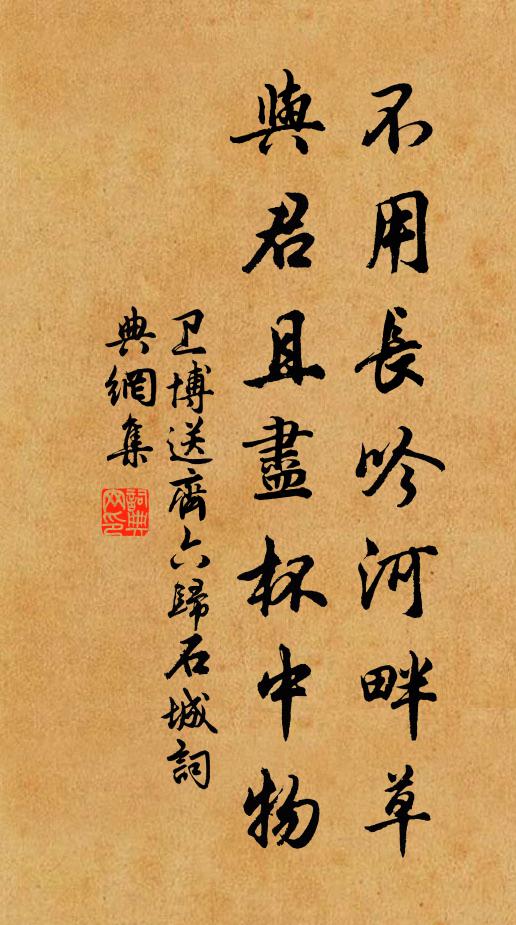 不用長吟河畔草
與君且盡杯中物
卫博送齊六歸石城詞
典網集
詞典网印